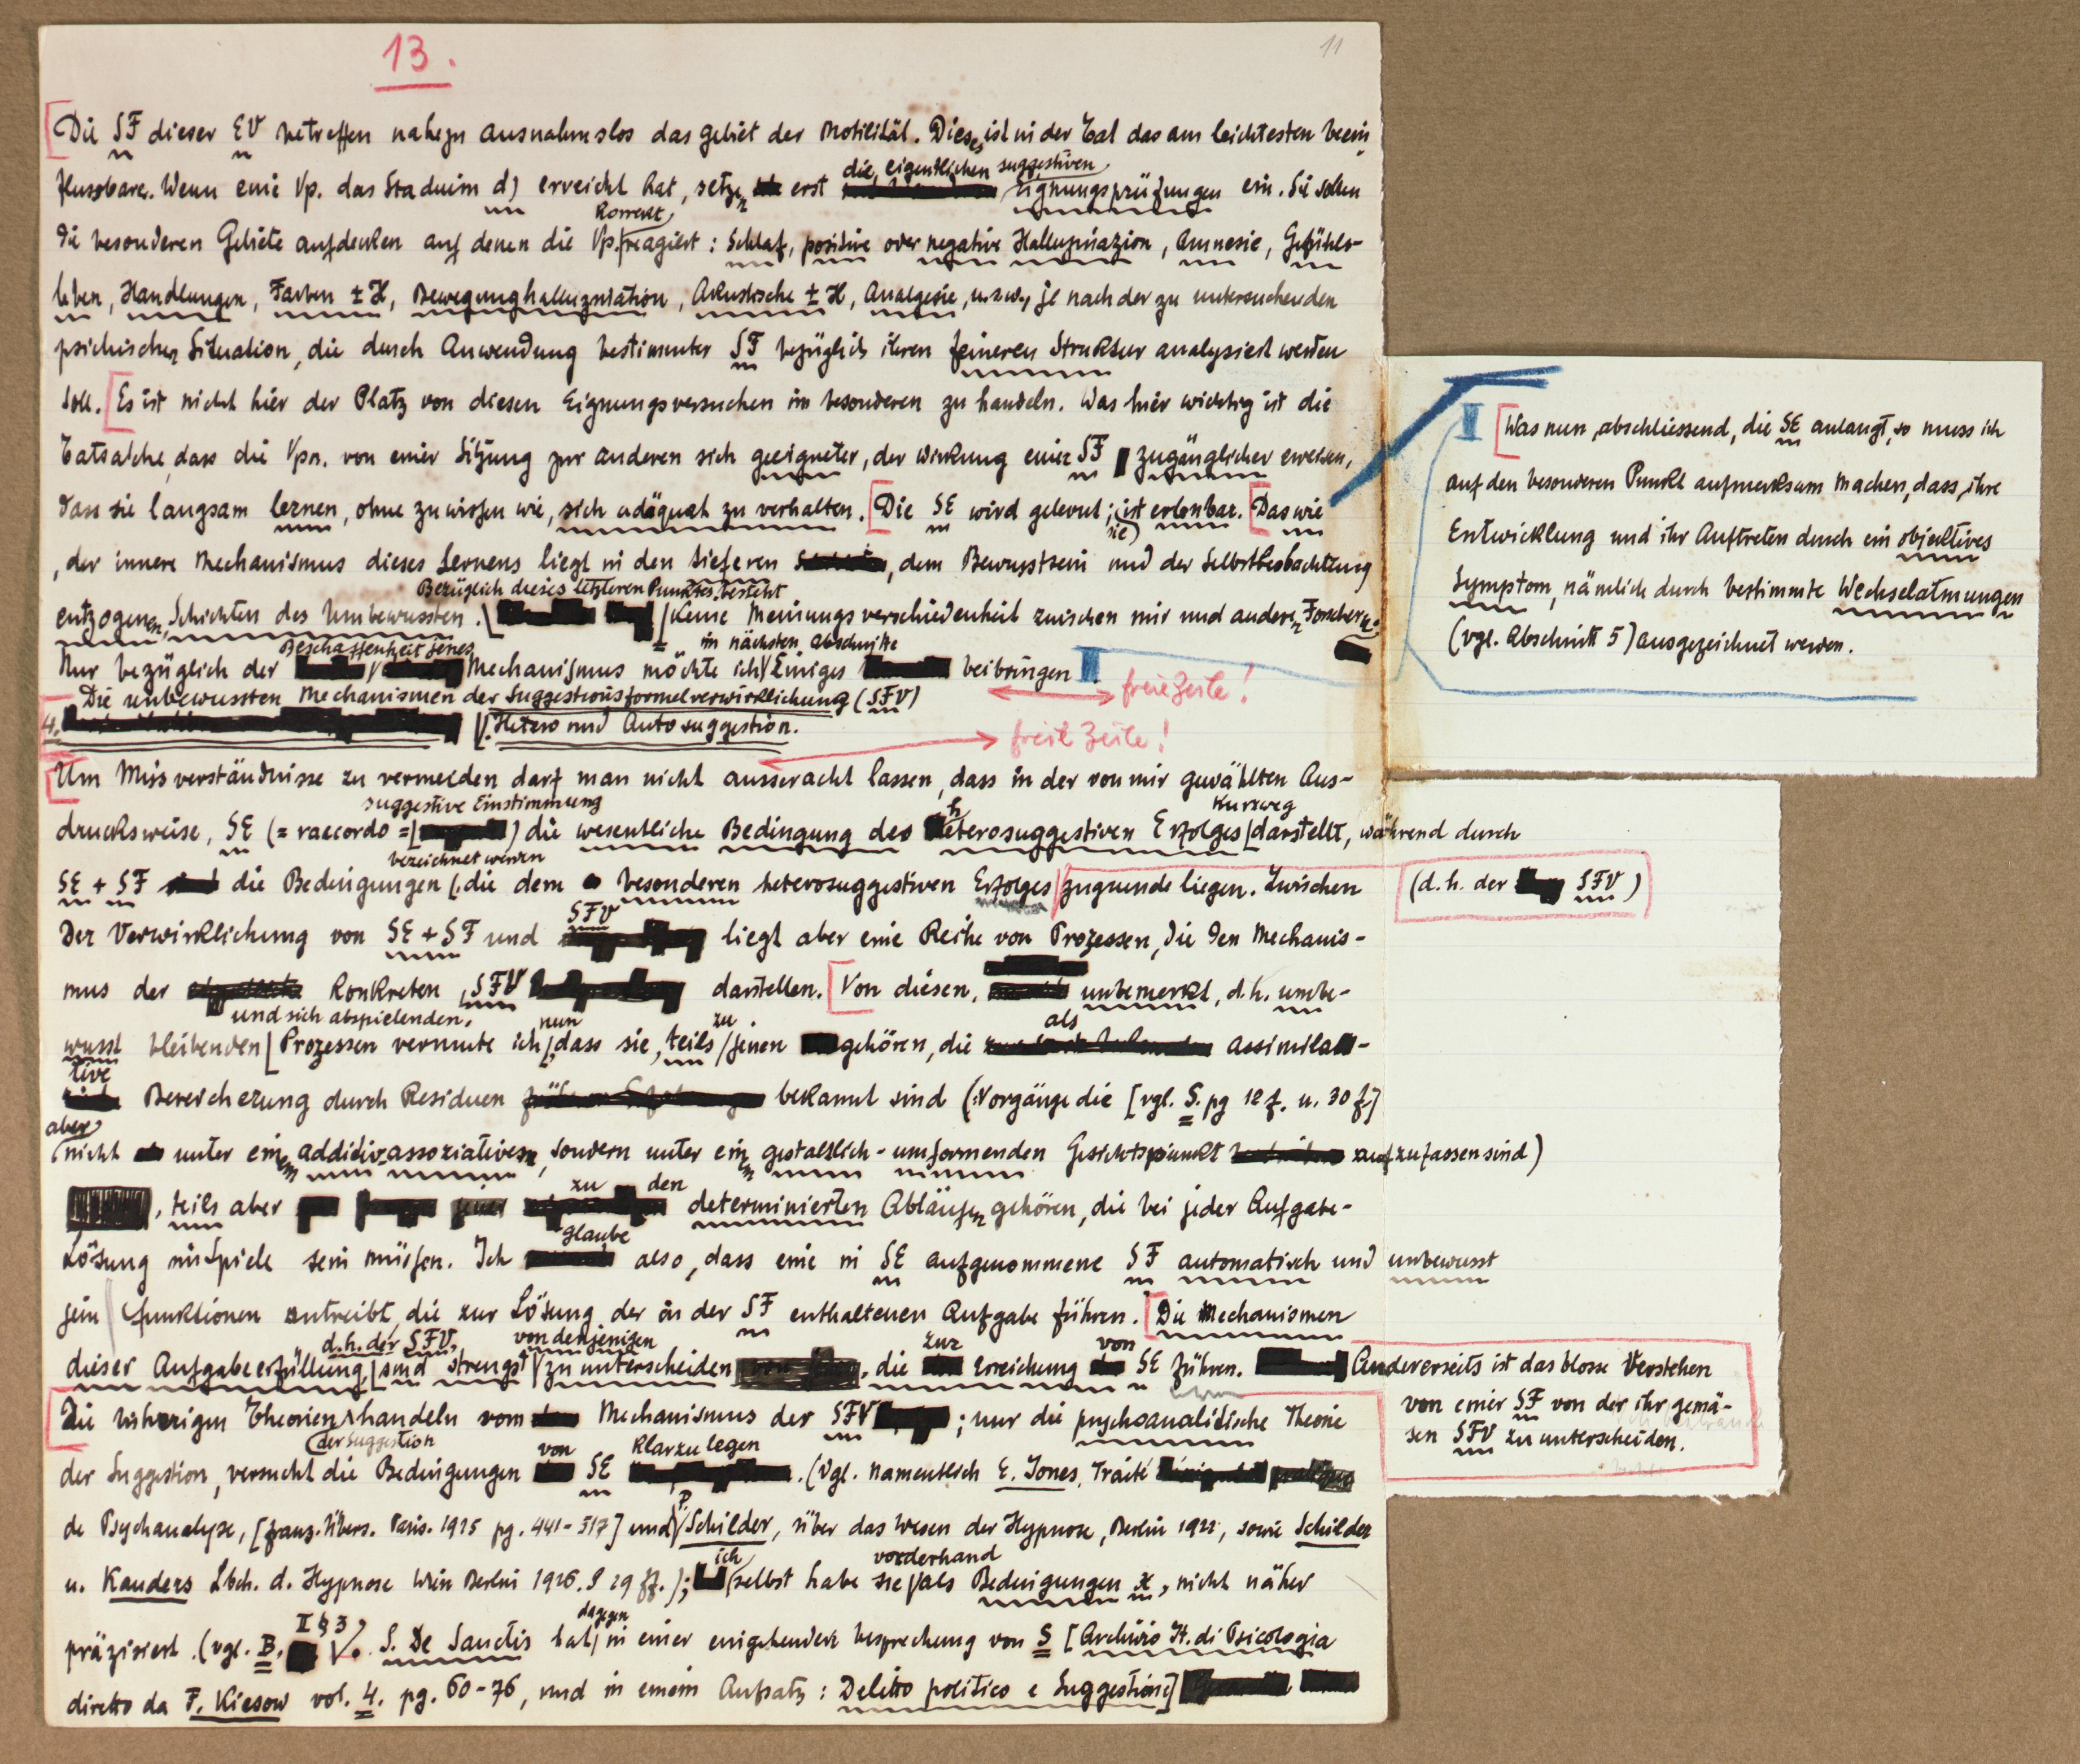 13.
11
Die SF dieser EV betreffen nahezu ausnahmslos das Gebiet der Motilität. Dieses ist in der Tat das am leichtesten beein
flussbare. Wenn eine Vp. das Stadium d) erreicht hat, setzen erst die eigentlichen suggestiven Eignungsprüfungen ein. Sie sollen
die besonderen Gebiete aufdecken auf denen die Vp. korrekt reagiert: Schlaf, positive oder negative Halluzination, Amnesie, Gefühls-
leben, Handlungen, Farben ± H, Bewegunghalluzniation, Akustische ± H, Analgesie, u.s.w., je nach der zu untersuchenden
psichischen Situation, die durch Anwendung bestimmter SF bezüglich ihren feineren Struktur analysiert werden
soll. [Es ist nicht hier der Platz von diesen Eignungsversuchen im besonderen zu handeln. Was hier wichtig ist die
Tatsache, dass die Vpn. von einer Sitzung zur anderen sich geeigneter, der Wirkung einer SF zugänglicher erweisen,
dass sie langsam lernen, ohne zu wissen wie, sich adäquat zu verhalten. [Die SE wird gelernt; sie ist erlernbar. [Das wie
, der innere Mechanismus dieses Lernens liegt in den tieferen, dem Bewusstsein und der Selbstbeobachtung
entzogenen, Schichten des Umbewussten. Bezüglich dieses letzteren Punktes besteht keine Meinungsverschiedenheit zwischen mir und andern Forschern.
Nur bezüglich der Beschaffenheit jenes Mechanismus möchte ich im nächsten Abschnitte Einiges beibringen II.
freie Zeile!
4. Die unbewussten Mechanismen der Suggestionsformelverwirklichung (SFV)
Hetero und Autosuggestion.
freie Zeile!
[Um Missverständnisse zu vermeiden darf man nicht ausseracht lassen, dass in der von mir gewählten Aus-
drucksweise, SE (= raccordo = suggestive Einstimmung) die wesentliche Bedingung des heterosuggestiven Erfolges kurzweg darstellt, während durch
SE + SF die Bedingungen bezeichnet werden, die dem besonderen heterosuggestiven Erfolges (d.h. der SFV) zugrunde liegen. Zwischen
Der Verwirklichung von SE + SF und SFV liegt aber eine Reihe von Prozessen, die den Mechanis-
mus der konkreten SFV darstellen. [Von diesen, unbemerkt, d.h. umbe-
wusst bleibenden und sich abspielenden, Prozessen vermute ich nun, dass sie, teils zu jenen gehören, die als assimila-
tive Bereicherung durch Residuen bekannt sind (Vorgänge die [vgl. S. pg 12 f. u. 30 f]
aber nicht unter einem addidiv-assoziativen, sondern unter einem gestaltlich-umformenden Gesichtspunkt aufzufassen sind)
, teils aber zu den determinierten Abläufen gehören, die bei jeder Aufgabe-
Lösung im Spiele sein müssen. Ich glaube also, dass eine in SE aufgenommene SF automatisch und unbewusst
jene Funktionen antreibt, die zur Lösung der in der SF enthaltenen Aufgabe führen. [Die Mechanismen
dieser Aufgabeerfüllung, d.h. der SFV, sind strengst von denjenigen zu unterscheiden, die zur Erreichung von SE führen. Andererseits ist das blosse Verstehen
von einer SF von der ihr gemä-
sen SFV zu unterscheiden.
[Die bisherigen Theorien der Suggestion handeln vom Mechanismus der SFV; nur die psychoanalidische Theorie
der Suggestion, versucht die Bedingungen von SE klarzulegen. (Vgl. namentlich E. Jones, Traité
de Psychanalyse, [franz. Übers. Paris. 1925 pg. 441-517] und P. Schilder, Über das Wesen der Hypnose, Berlin 1922, sowie Schilder
u. Kauders Lbch. d. Hypnose Wien Berlin 1926. S 29 ff.); ich selbst habe sie vorderhand als Bedingungen x, nicht näher
präzisiert. (vgl. B. II § 3). S. De Sanctis hat dagegen in einer eingehenden Besprechung von S [Archivio It. di Psicologia
diretto da F. Kiesow vol. 4. pg. 60-76, und in einem Aufsatz: Delitto politico e Suggestione]
II [Was nun, abschliessend, die SE anlangt, so muss ich
auf den besonderen Punkt aufmerksam machen, dass ihre
Entwicklung und ihr Auftreten durch ein objektives
Symptom, nämlich durch bestimmte Wechselatmungen
(vgl. Abschnitt 5) ausgezeichnet werden.